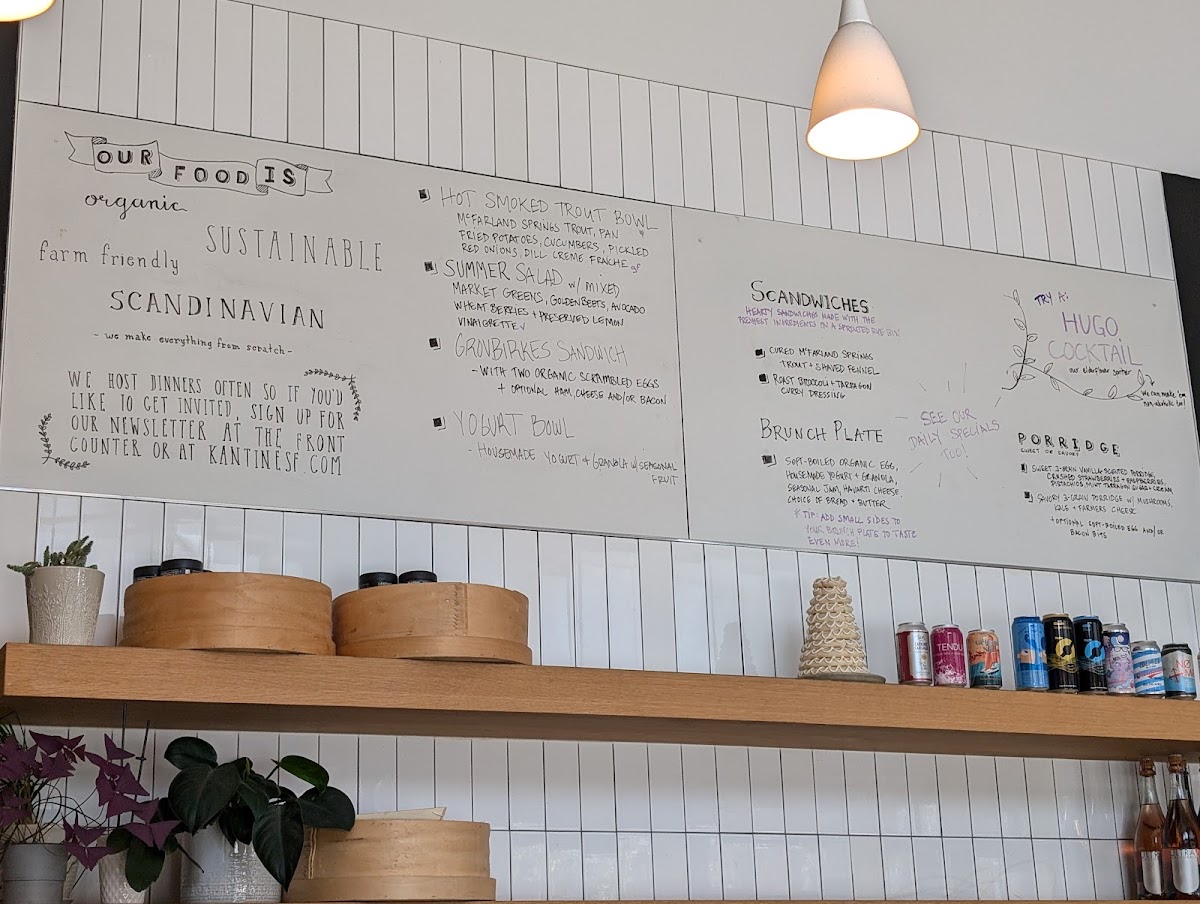 OUR FOOD IS
organic
SUSTAINABLE
farm friendly
SCANDINAVIAN
- we make everything from scratch -
WE HOST DINNERS OFTEN SO IF YOU'D
LIKE TO GET INVITED, SIGN UP FOR
OUR NEWSLETTER AT THE FRONT
COUNTER OR AT KANTINESF.COM
HOT SMOKED TROUT BOWL
MCFARLAND SPRINGS TROUT, PAN
FRIED POTATOES, CUCUMBERS, PICKLED
RED ONIONS, DILL CREME FRAICHE gf
SUMMER SALAD w/ MIXED
MARKET GREENS, GOLDEN BEETS, AVOCADO
WHEAT BERRIES + PRESERVED LEMON
VINAIGRETTE V
GROVBIRKES SANDWICH
- WITH TWO ORGANIC SCRAMBLED EGGS
+ OPTIONAL HAM, CHEESE AND/OR BACON
YOGURT BOWL
- HOUSEMADE YOGURT + GRANOLA W/SEASONAL
FRUIT
SCANDWICHES
HEARTY SANDWICHES MADE WITH THE
FRESHEST INGREDIENTS ON A SPROUTED RYE BUN
CURED MCFARLAND SPRINGS
TROUT + SHAVED FENNEL
ROAST BROCCOLI + TARRAGON
CURRY DRESSING
BRUNCH PLATE
SOFT-BOILED ORGANIC EGG,
HOUSEMADE YOGURT + GRANOLA,
SEASONAL JAM, HAVARTI CHEESE
CHOICE OF BREAD + BUTTER
* TIP: ADD SMALL SIDES TO
YOUR BRUNCH PLATE TO TASTE
EVEN MORE!
SEE OUR
DAILY SPECIALS
TOO!
TRY A:
HUGO
COCKTAIL
our elderflower spritzer
we can make 'em
non-alcoholic too!
PORRIDGE
SWEET OR SAVORY
SWEET 3-GRAIN VANILLA-SCENTED PORRIDGE,
CRUSHED STRAWBERRIES + RASPBERRIES,
PISTACHIOS, MINT TARRAGON SUGAR + CREAM
SAVORY 3-GRAIN PORRIDGE W/ MUSHROOMS,
KALE + FARMERS CHEESE
+ OPTIONAL SOFT-BOILED EGG AND/OR
BACON BITS
TENDU